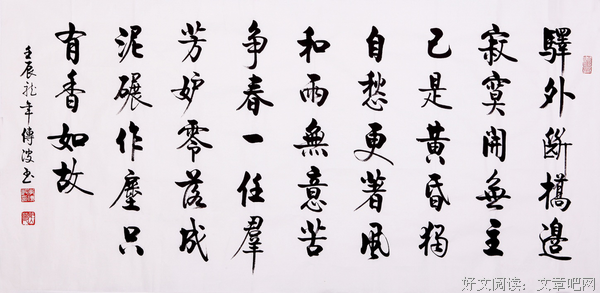 驛外斷橋邊
寂寞開無主
已是黃昏獨
自愁更著風
和雨無意苦
争春一任羣
芳妒零落成
泥碾作塵只
有香如故
壬辰龍年傳波书
好文阅读：文章吧网